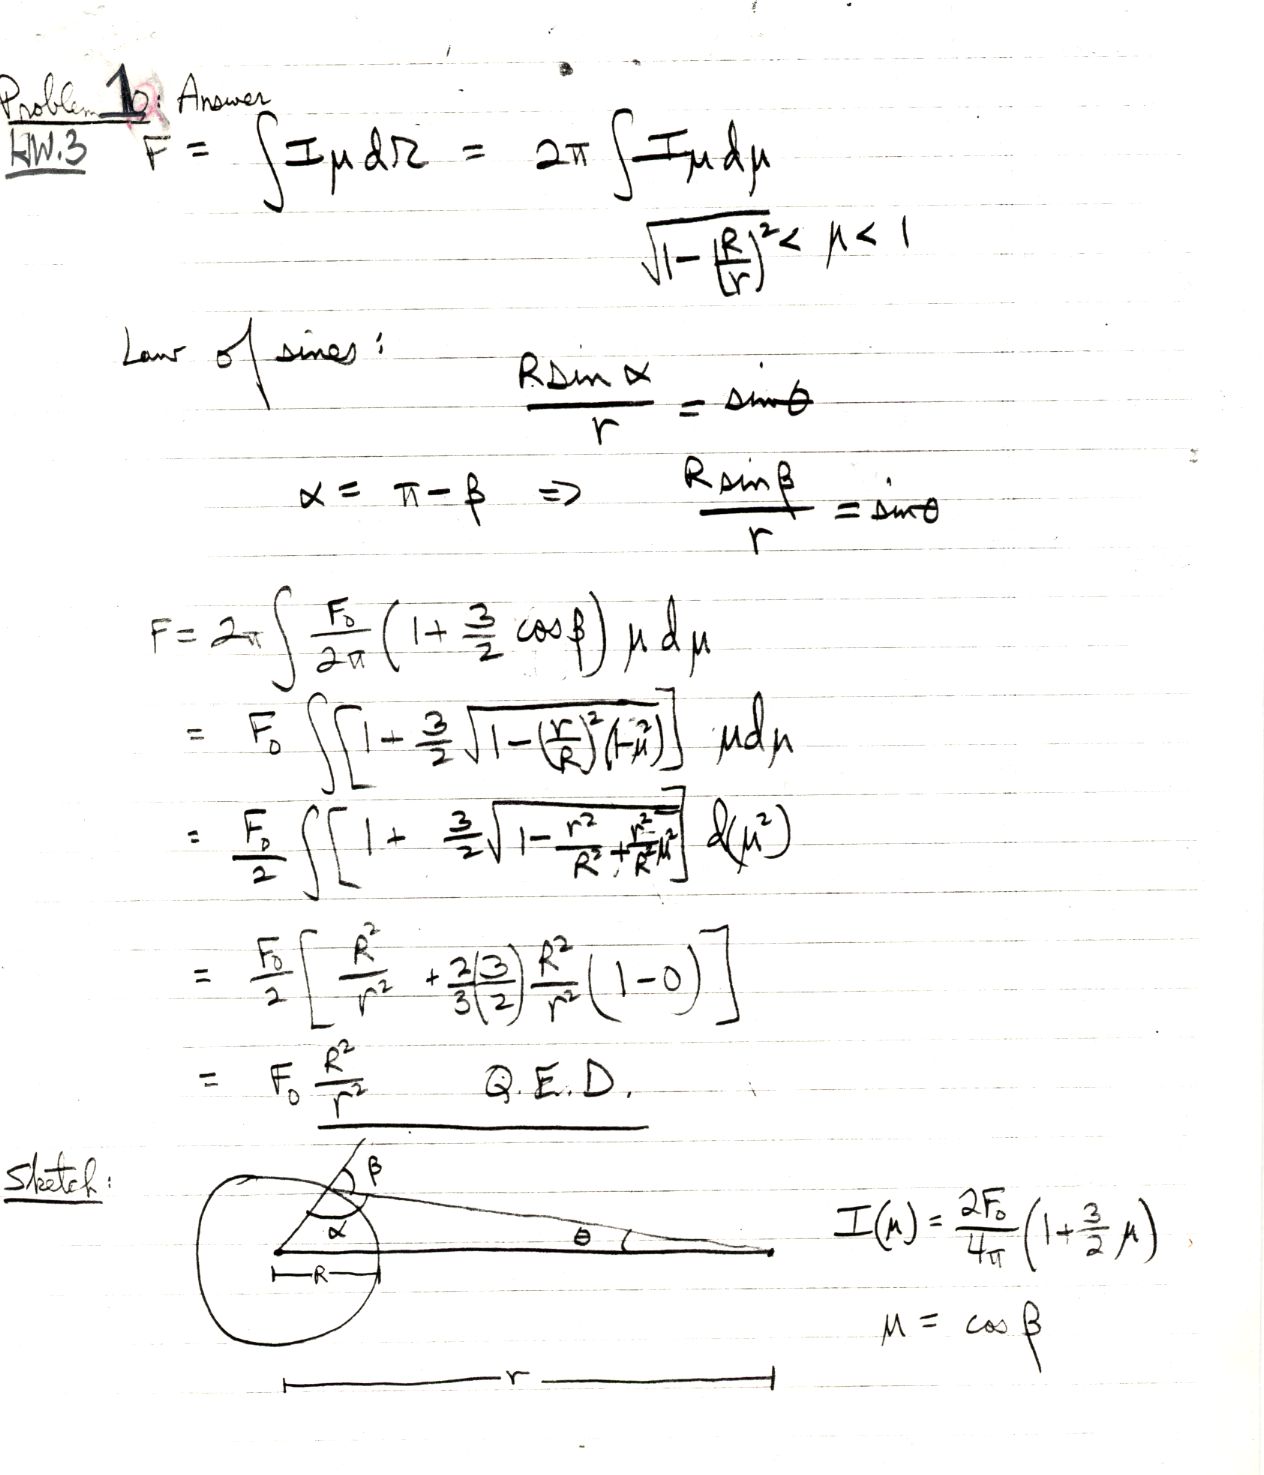 Problem 1: Answer
HW.3 F = ∫ I μ dΩ = 2π ∫ I μ dμ
√(1 - (R/r)²) < μ < 1
Law of sines:
R sin α / r = sin θ
α = π - β ⇒ R sin β / r = sin θ
F = 2π ∫ F₀/2π (1 + 3/2 cos β) μ dμ
= F₀ ∫ [1 + 3/2 √(1 - (r/R)² (1-μ²))] μ dμ
= F₀/2 ∫ [1 + 3/2 √(1 - r²/R² + r²/R² μ²)] d(μ²)
= F₀/2 [R²/r² + 2/3 (3/2) R²/r² (1-0)]
= F₀ R²/r² Q.E.D.
Sketch:
β
α
θ
R
r
I(μ) = 2F₀/4π (1 + 3/2 μ)
μ = cos β